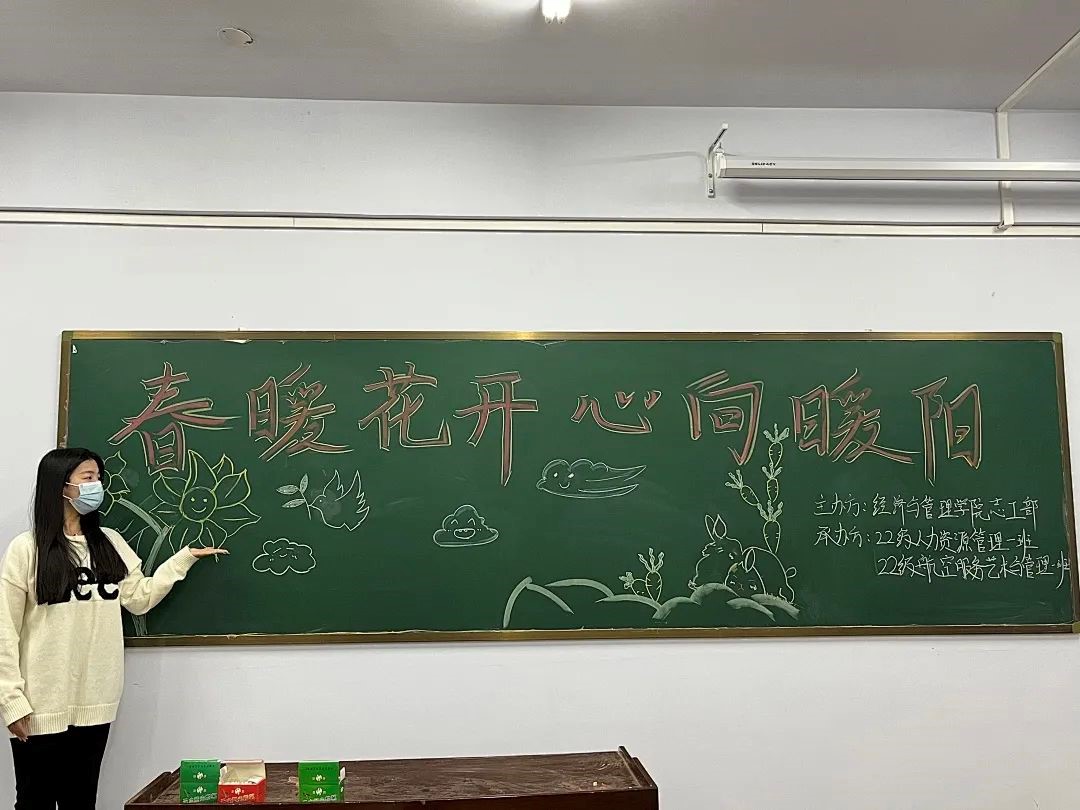 春暖花开心向暖阳
主办方：经济与管理学院志工部
承办方：22级人力资源管理一班
22级航空服务艺术与管理一班